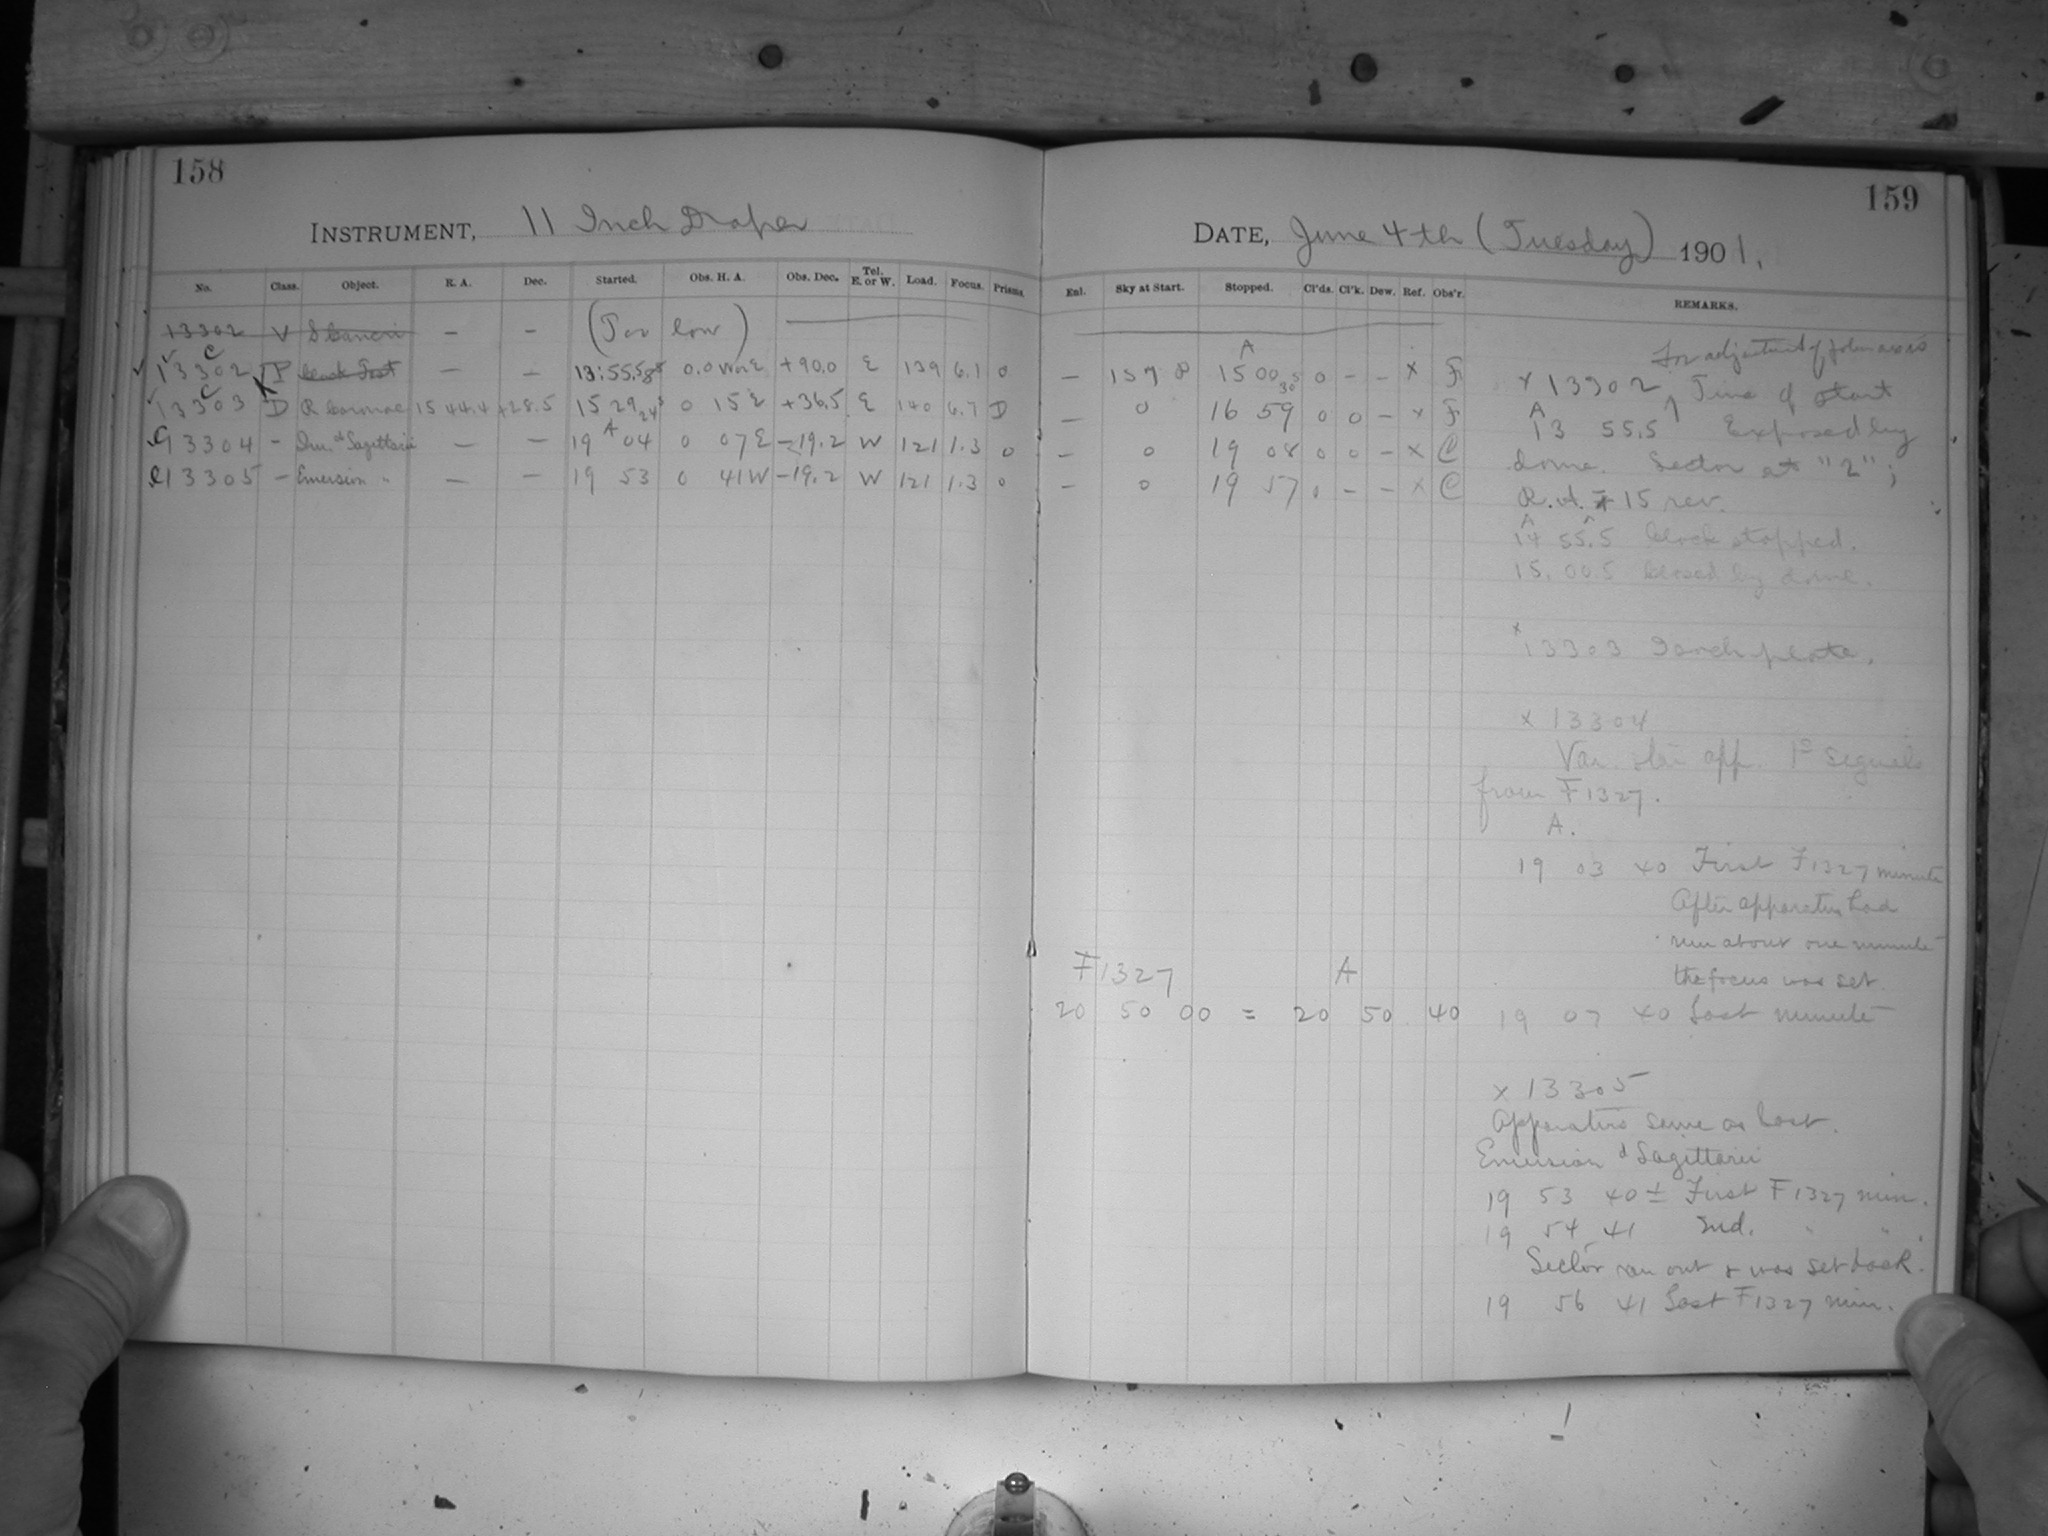 158
INSTRUMENT, 11 Inch Draper
No. Class. Object. R. A. Dec. Started. Obs. H. A. Obs. Dec. Tel. E. or W. Load. Focus. Prisms.
13302 V S Cancri — — (Too low)
13302 P — — 13:55.5 0.0 W or E +90.0 E 139 6.1 0
13303 D R Coronae 15 44.4 +28.5 15 29 24 0 15 E +36.5 E 140 6.7 D
13304 - Im. d Sagittarii — — 19 04 0 07 E -19.2 W 121 1.3 0
13305 - Emersion " — — 19 53 0 41 W -19.2 W 121 1.3 0
159
DATE, June 4th (Tuesday) 1901.
Enl. Sky at Start. Stopped. Cl'ds. Cl'k. Dew. Ref. Obs'r. REMARKS.
— 15 00 0 - - x
— 0 16 59 0 0 - x
— 0 19 08 0 0 - x C
— 0 19 57 0 - - x C
For adjustment of polar axis
x 13302 Time of start
A
13 55.5 Exposed by
dome. Sector at "2";
R.A. 15 rev.
A
14 55.5 Clock stopped.
15.00.5 Closed by dome.
x 13303 plate.
x 13304
Var. star app. 1s signals
from F1327.
A.
19 03 40 First F1327 minute
After apparatus had
run about one minute
the focus was set.
19 07 40 Last minute
F1327 A
20 50 00 = 20 50 40
x 13305
Apparatus same as last.
Emersion d Sagittarii
19 53 40 ± First F1327 min.
19 54 41 2nd. " "
Sector ran out & was set back.
19 56 41 Last F1327 min.